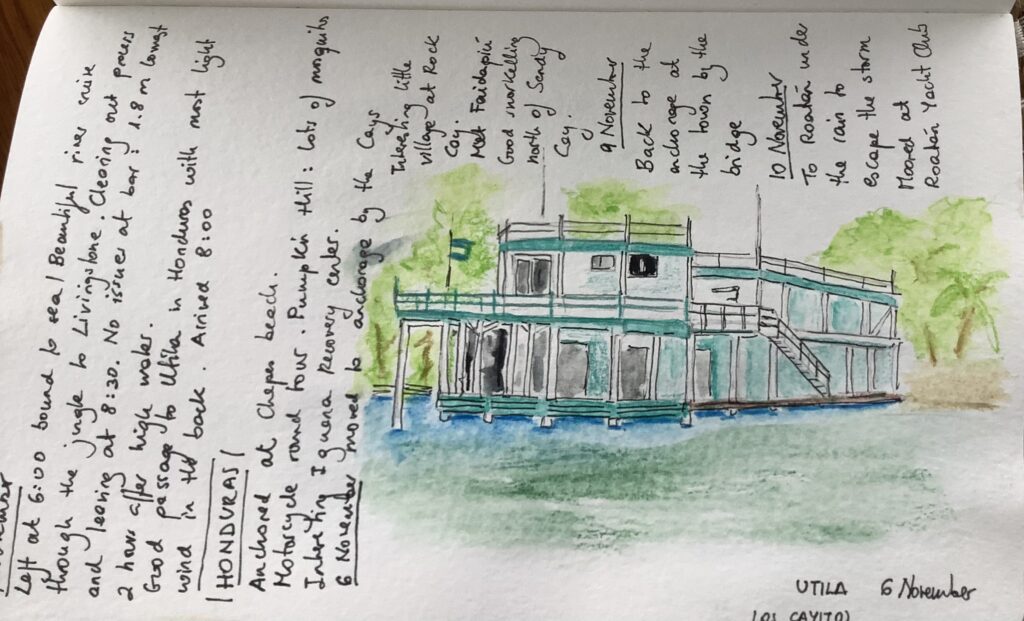 Left at 6:00 bound to sea! Beautiful river cruise
through the jungle to Livingstone. Clearing out process
and leaving at 8:30. No issues at bar: 1.8 m lowest
2 hours after high water.
Good passage to Utila in Honduras with most light
wind in the back. Arrived 8:00
HONDURAS
Anchored at Chepes beach.
Motorcycle round tour. Pumpkin Hill: Lots of mosquitos
Interesting Iguana Recovery center.
6 November moved to anchorage by the Cays
Interesting little
village at Rock
Cay.
Met
Good snorkelling
north of Sandy
Cay.
9 November
Back to the
anchorage at
the town by the
bridge
10 November
To Roatán under
the rain to
escape the storm
Moored at
Roatán Yacht Club
UTILA 6 November
(LOS CAYITOS)